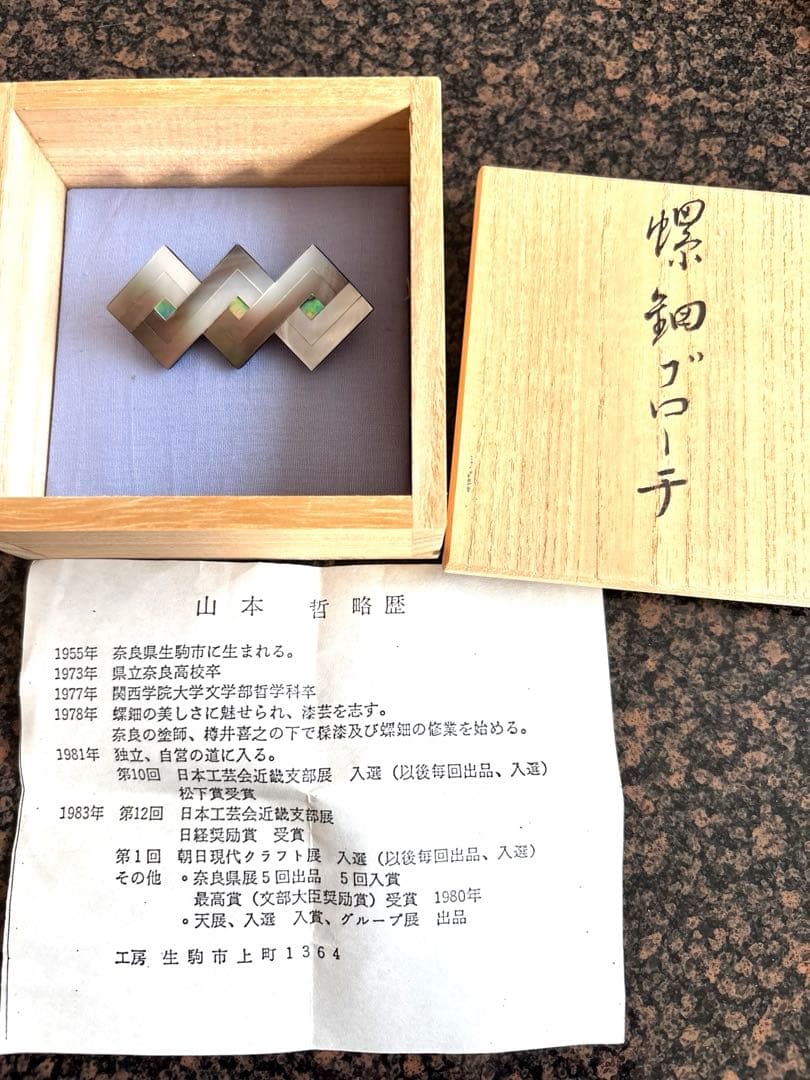 螺鈿ブローチ
山本 哲略歴
1955年 奈良県生駒市に生まれる。
1973年 県立奈良高校卒
1977年 関西学院大学文学部哲学科卒
1978年 螺鈿の美しさに魅せられ、漆芸を志す。
奈良の塗師、樽井喜之の下で髹漆及び螺鈿の修業を始める。
1981年 独立、自営の道に入る。
第10回 日本工芸会近畿支部展 入選(以後毎回出品、入選)
松下賞受賞
1983年 第12回 日本工芸会近畿支部展
日経奨励賞 受賞
第1回 朝日現代クラフト展 入選(以後毎回出品、入選)
その他 ◦奈良県展5回出品 5回入賞
最高賞(文部大臣奨励賞)受賞 1980年
◦天展、入選 入賞、グループ展 出品
工房 生駒市上町1364